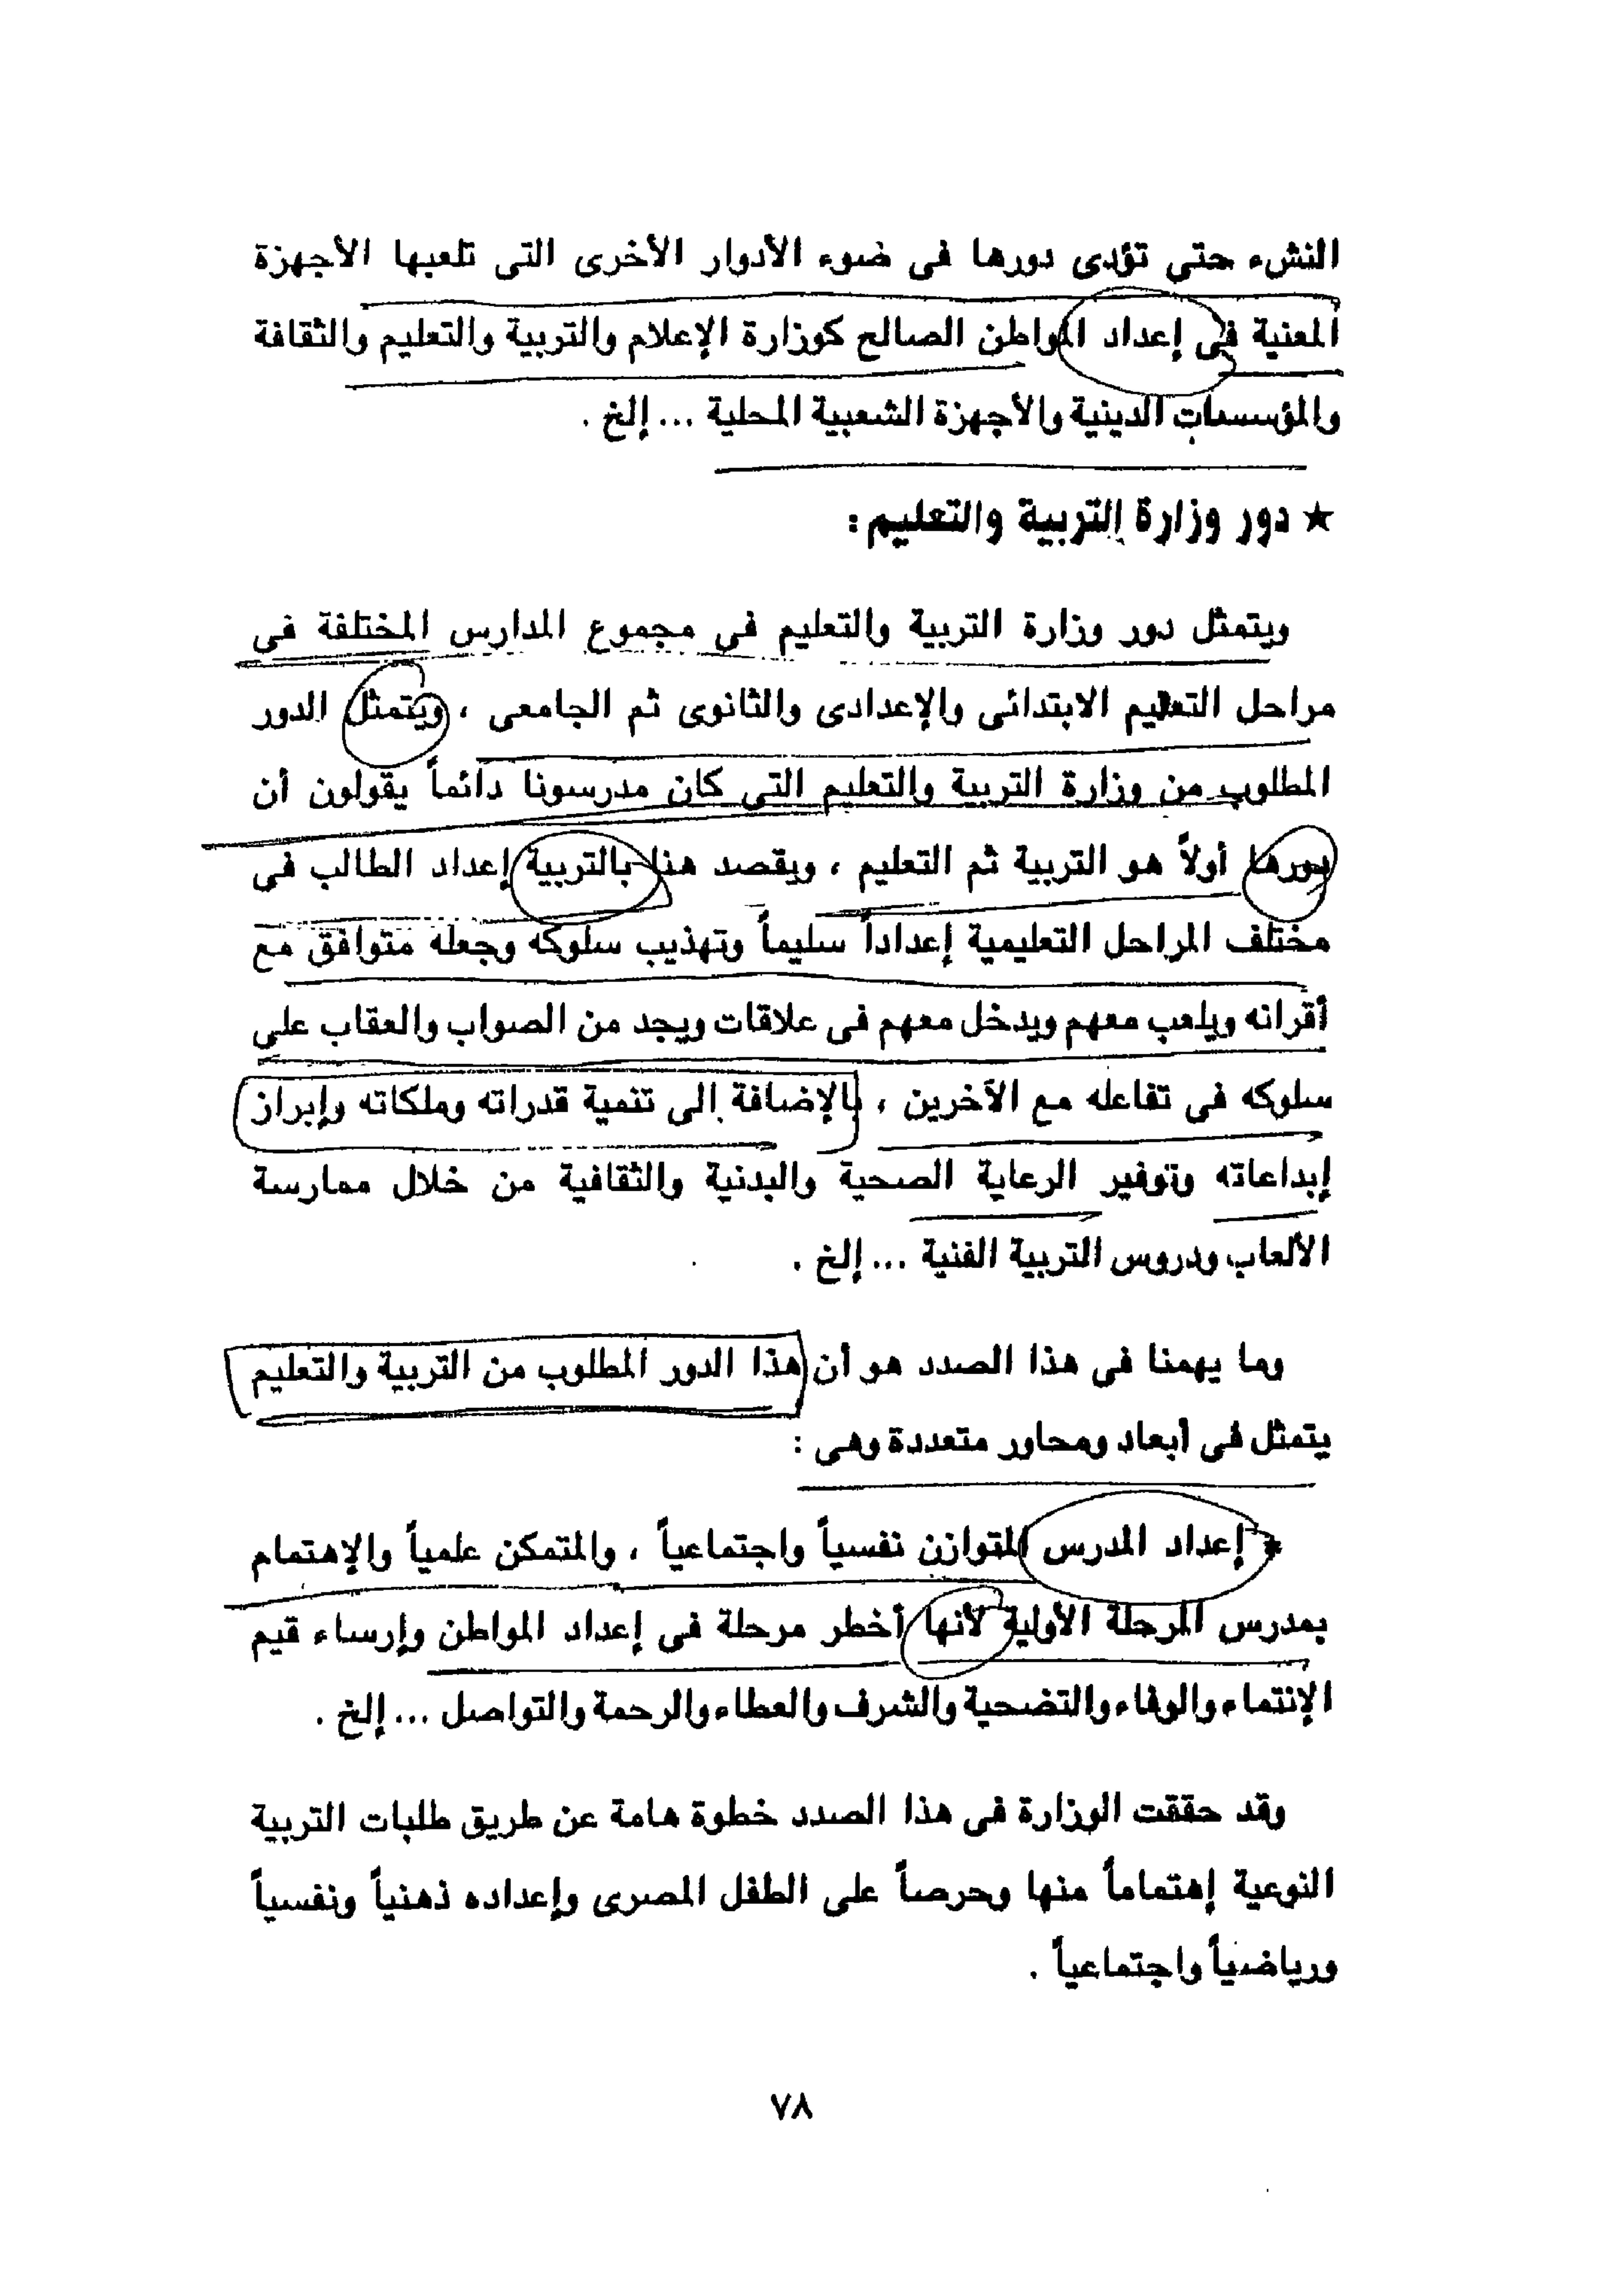 النشء حتي تؤدى دورها فى ضوء الأدوار الأخرى التى تلعبها الأجهزة
المعنية فى إعداد المواطن الصالح كوزارة الإعلام والتربية والتعليم والثقافة
والمؤسسات الدينية والأجهزة الشعبية المحلية ... إلخ .
★ دور وزارة التربية والتعليم :
ويتمثل دور وزارة التربية والتعليم في مجموع المدارس المختلفة فى
مراحل التعليم الابتدائى والإعدادى والثانوى ثم الجامعى ، ويتمثل الدور
المطلوب من وزارة التربية والتعليم التى كان مدرسونا دائماً يقولون أن
دورها أولاً هو التربية ثم التعليم ، ويقصد هنا بالتربية إعداد الطالب فى
مختلف المراحل التعليمية إعداداً سليماً وتهذيب سلوكه وجعله متوافق مع
أقرانه ويلعب معهم ويدخل معهم فى علاقات ويجد من الصواب والعقاب على
سلوكه فى تفاعله مع الآخرين ، بالإضافة إلى تنمية قدراته وملكاته وإبراز
إبداعاته وتوفير الرعاية الصحية والبدنية والثقافية من خلال ممارسة
الألعاب ودروس التربية الفنية ... إلخ .
وما يهمنا فى هذا الصدد هو أن هذا الدور المطلوب من التربية والتعليم
يتمثل فى أبعاد ومحاور متعددة وهى :
* إعداد المدرس المتوازن نفسياً واجتماعياً ، والمتمكن علمياً والإهتمام
بمدرس المرحلة الأولية لأنها أخطر مرحلة فى إعداد المواطن وإرساء قيم
الإنتماء والوفاء والتضحية والشرف والعطاء والرحمة والتواصل ... إلخ .
وقد حققت الوزارة فى هذا الصدد خطوة هامة عن طريق طلبات التربية
النوعية إهتماماً منها وحرصاً على الطفل المصرى وإعداده ذهنياً ونفسياً
ورياضياً واجتماعياً .
٧٨